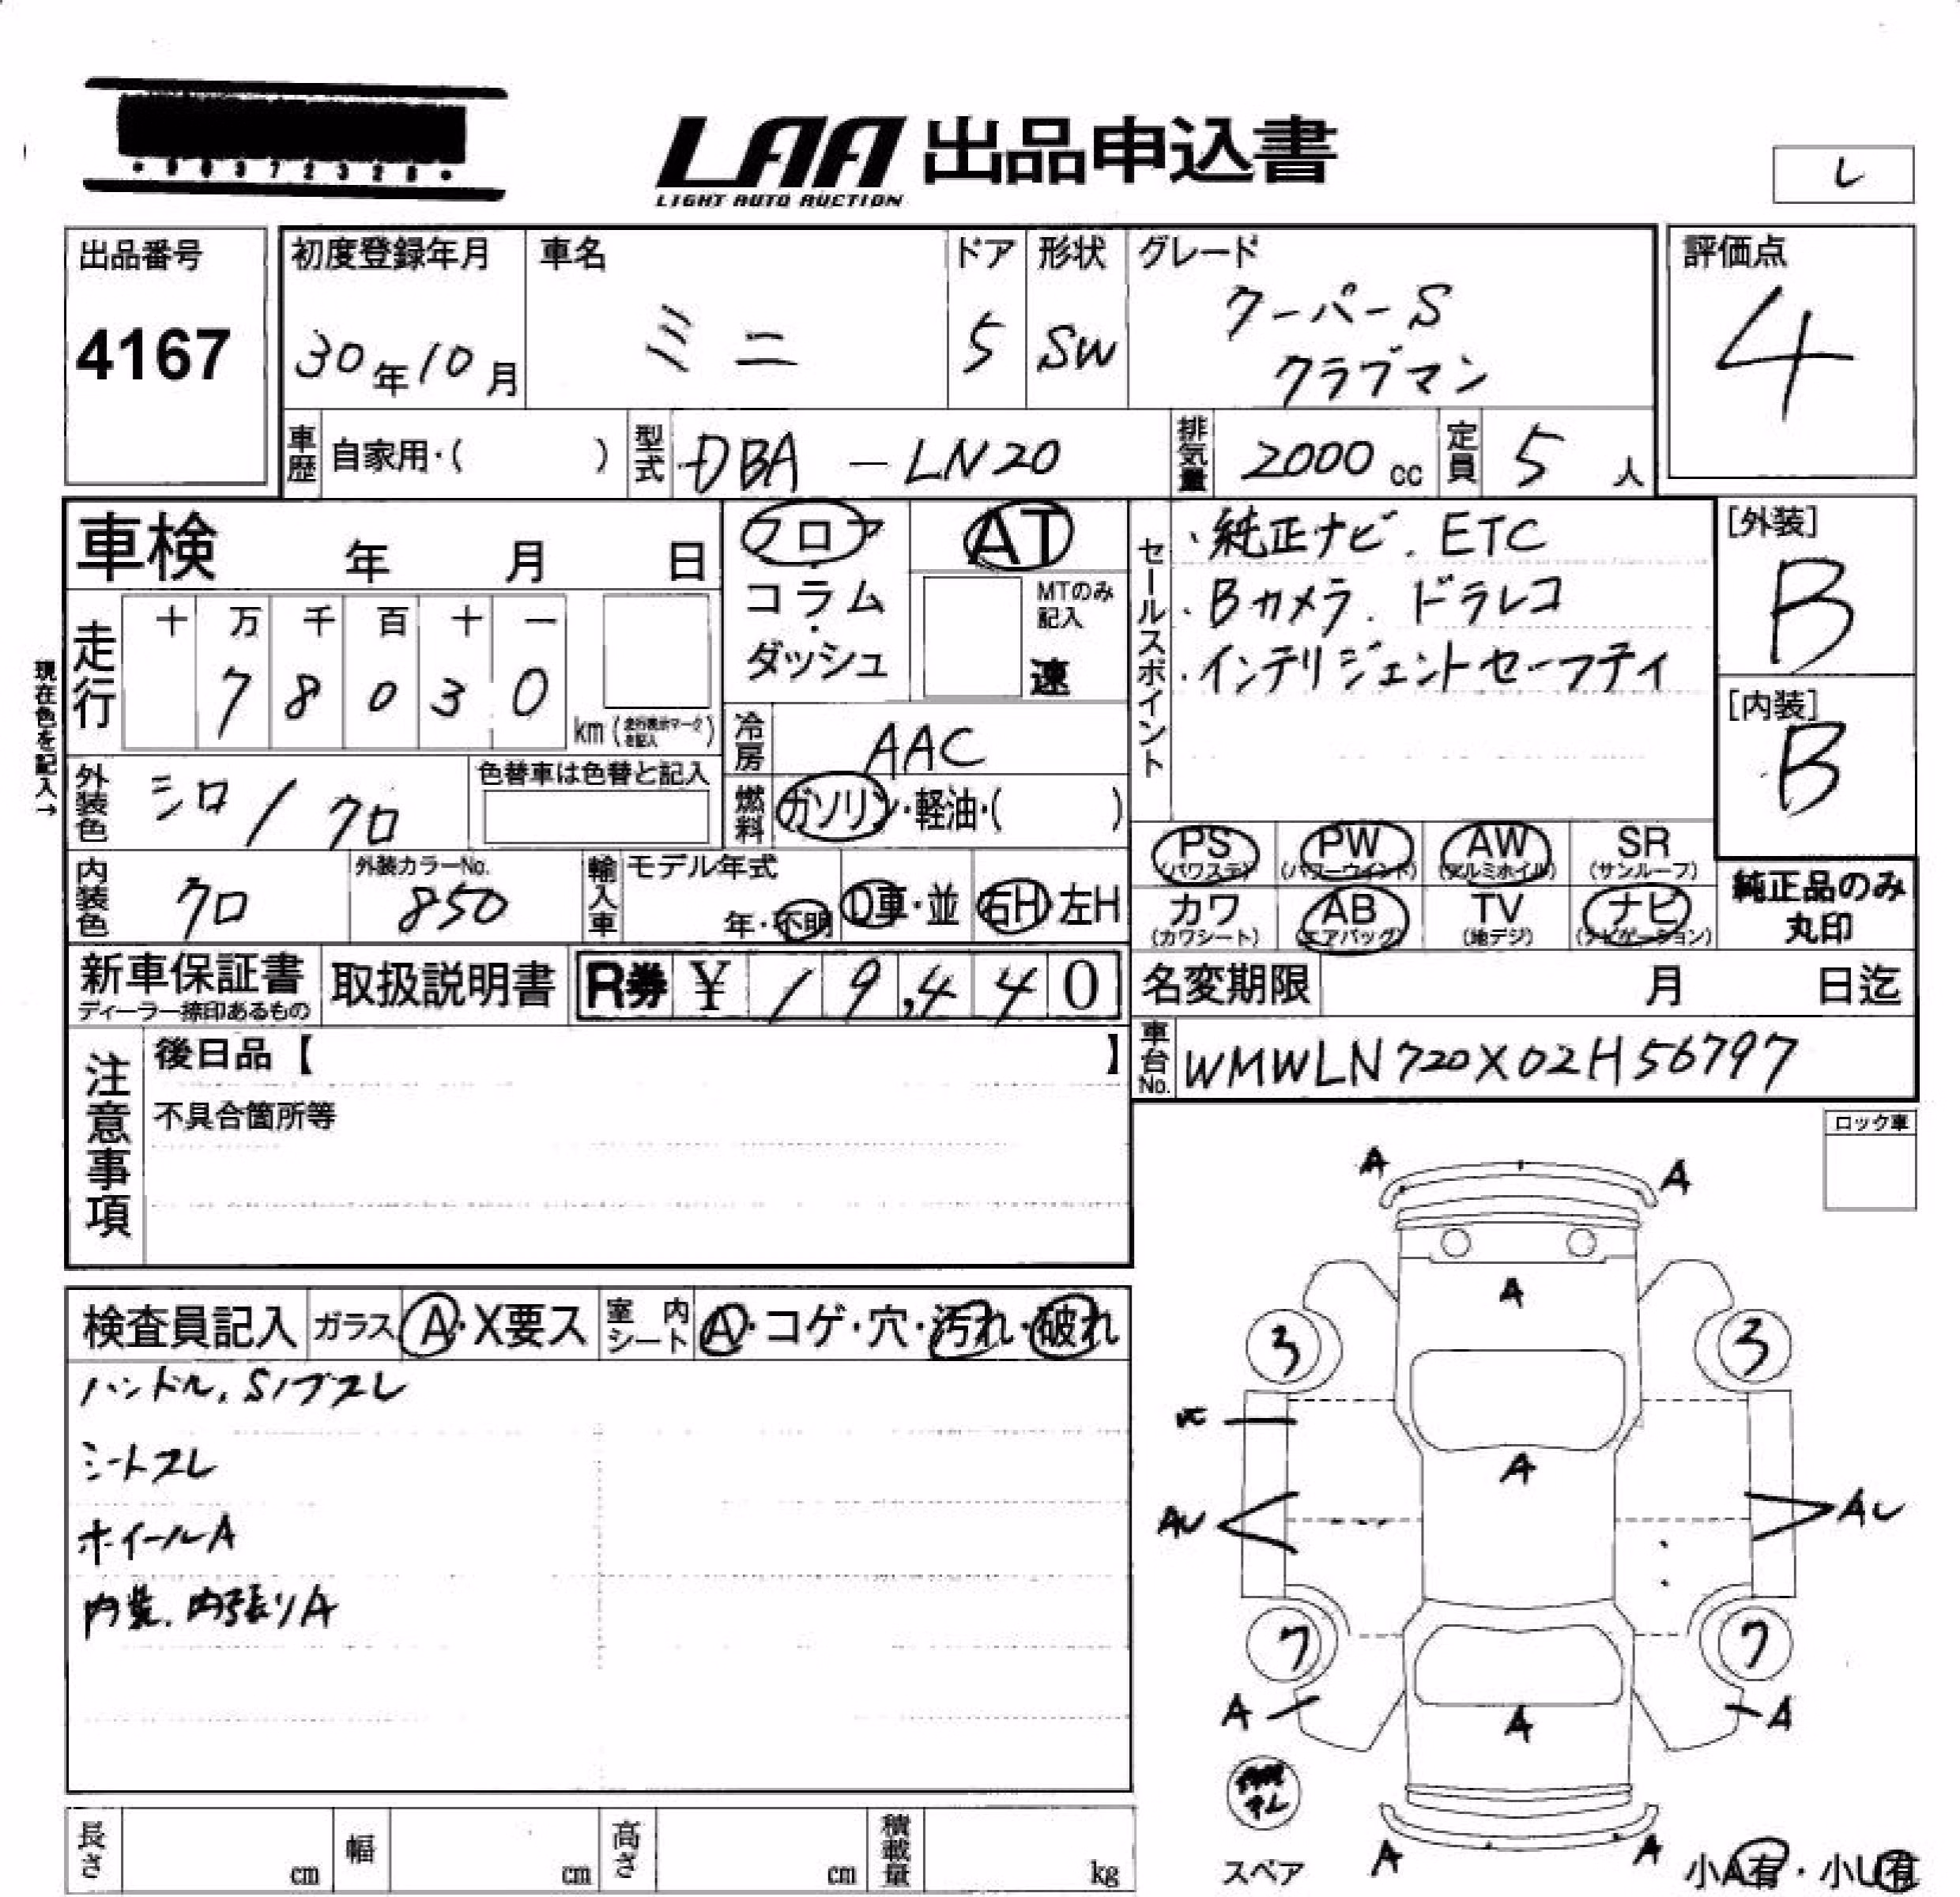 LAA 出品申込書
LIGHT AUTO AUCTION
レ
出品番号
4167
初度登録年月
30年10月
車名
ミニ
ドア
5
形状
SW
グレード
クーパーS
クラブマン
評価点
4
車歴 自家用・( )
型式 DBA - LN20
排気量 2000 cc
定員 5 人
車検 年 月 日
フロア
コラム
・
ダッシュ
AT
MTのみ
記入
速
セールスポイント
・純正ナビ. ETC
・Bカメラ. ドラレコ
・インテリジェントセーフティ
[外装]
B
[内装]
B
現在色を記入→
走行
十 万 千 百 十 一
7 8 0 3 0
km (走行表示マークを記入)
冷房 AAC
燃料 ガソリン・軽油・( )
外装色 シロ / クロ
色替車は色替と記入
内装色 クロ
外装カラーNo.
850
輸入車
モデル年式
年・不明
D車・並
右H・左H
PS
(パワステ)
PW
(パワーウインド)
AW
(アルミホイル)
SR
(サンルーフ)
カワ
(カワシート)
AB
(エアバッグ)
TV
(地デジ)
ナビ
(ナビゲーション)
純正品のみ
丸印
新車保証書
ディーラー捺印あるもの
取扱説明書
R券 ¥ 19,440
名変期限 月 日迄
車台No. WMWLN720X02H56797
注意事項
後日品【 】
不具合箇所等
ロック車
検査員記入
ガラス A・X要ス
室内シート A・コゲ・穴・汚れ・破れ
ハンドル. Sノブスレ
シートスレ
ホイールA
内装. 内張りA
A A
A
3 3
A
AU AU
7 7
A A
A
スペア
A A
小A有・小U有
長さ cm
幅 cm
高さ cm
積載量 kg